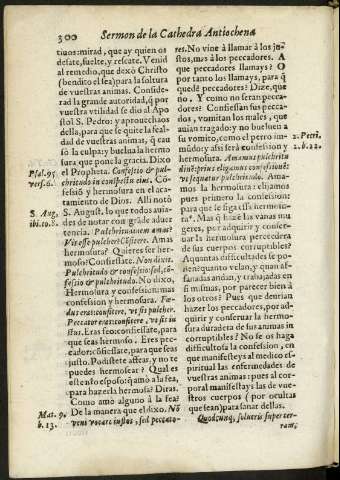 300
Sermon de la Cathedra Antiochena
tiuos: mirad, que ay quien os
desate, suelte, y rescate. Venid
al remedio, que dexò Christo
(bendito el sea) para la soltura
de vuestras animas. Conside-
rad la grande autoridad, q̃ por
vuestra vtilidad se dio al Apo
stol S. Pedro: y aprouechaos
della, para que se quite la feal-
dad de vuestras animas, q̃ cau
sò la culpa: y buelua la hermo
sura, que pone la gracia. Dixo
el Propheta. Confessio & pul-
chritudo in conspectu eius. Cõ
fessió y hermosura en el aca-
tamiento de Dios. Alli notò
S. August. lo que todos auia-
des de notar con gràde aduer
tencia. Pulchritudinem amas?
Vis esse pulcher? Cõfitere. Amas
hermosura? Quieres ser her-
moso? Confiessate. Non dixit.
Pulchritudo & confessio: sed, cõ-
fessio & pulchritudo. No dixo,
Hermosura y confession: mas
confession y hermosura. Fœ-
dus eras: confitere, vt sis pulcher.
Peccator eras: confitere, vt sis in-
stus. Eras feo: confiessate, para
que seas hermoso. Eres pec-
cador: cõfiessate, para que seas
justo. Podiste te afear, y no te
puedes hermosear? Qual es
este nto esposo q̃ amò a la fea,
para hazerla hermosa? Diras.
Como amo alguno à la fea?
De la manera que el dixo. Nõ
veni vocare iustos, sed peccato-
Psal. 95.
vers. 6.
S. Aug.
ibi. to. 8.
Mat. 9.
b. 13.
res. No vine à llamar à los jũ-
stos, mas à los peccadores. A
que peccadores llamays? O
por tanto los llamays, para q̃
quedẽ peccadores? Dize, que
no. Y como no seran peccca-
dores? Confiessan sus pecca-
dos, vomitan los males, que
auian tragado: y no bueluen a
su vomito, como el perro im-
mũdo: y assi serà confession y
hermosura. Amamus pulchritu
dinẽ: prius eligamus confessionẽ:
vt sequatur pulchritudo. Amamos
la hermosura: elijamos
pues primero la confession:
para que se siga essa hermosu-
ra. Mas q̃ harè las vanas mu
geres, por adquirir y confer-
uar la hermosura perecedera
de sus cuerpos corruptibles?
A quantas difficultades se po-
nen? quanto velan, y quan af-
sanadas, y trabajadas estan en
si mismas, por parecer bien à
los otros? Pues que deurian
hazer los peccadores, por ad-
quirir y conseruar la hermo
sura duradera de sus animas in
corruptibles? No se os haga
difficultosa la confession, en
que manifesteys al medico es-
piritual las enfermedades de
vuestras animas: pues que cor
poral manifestays las de vue-
stros cuerpos (por ocultas
que sean) para sanar dellas.
Quodcunq, solueris super ter-
ram,
2. Petri.
2. b. 22.